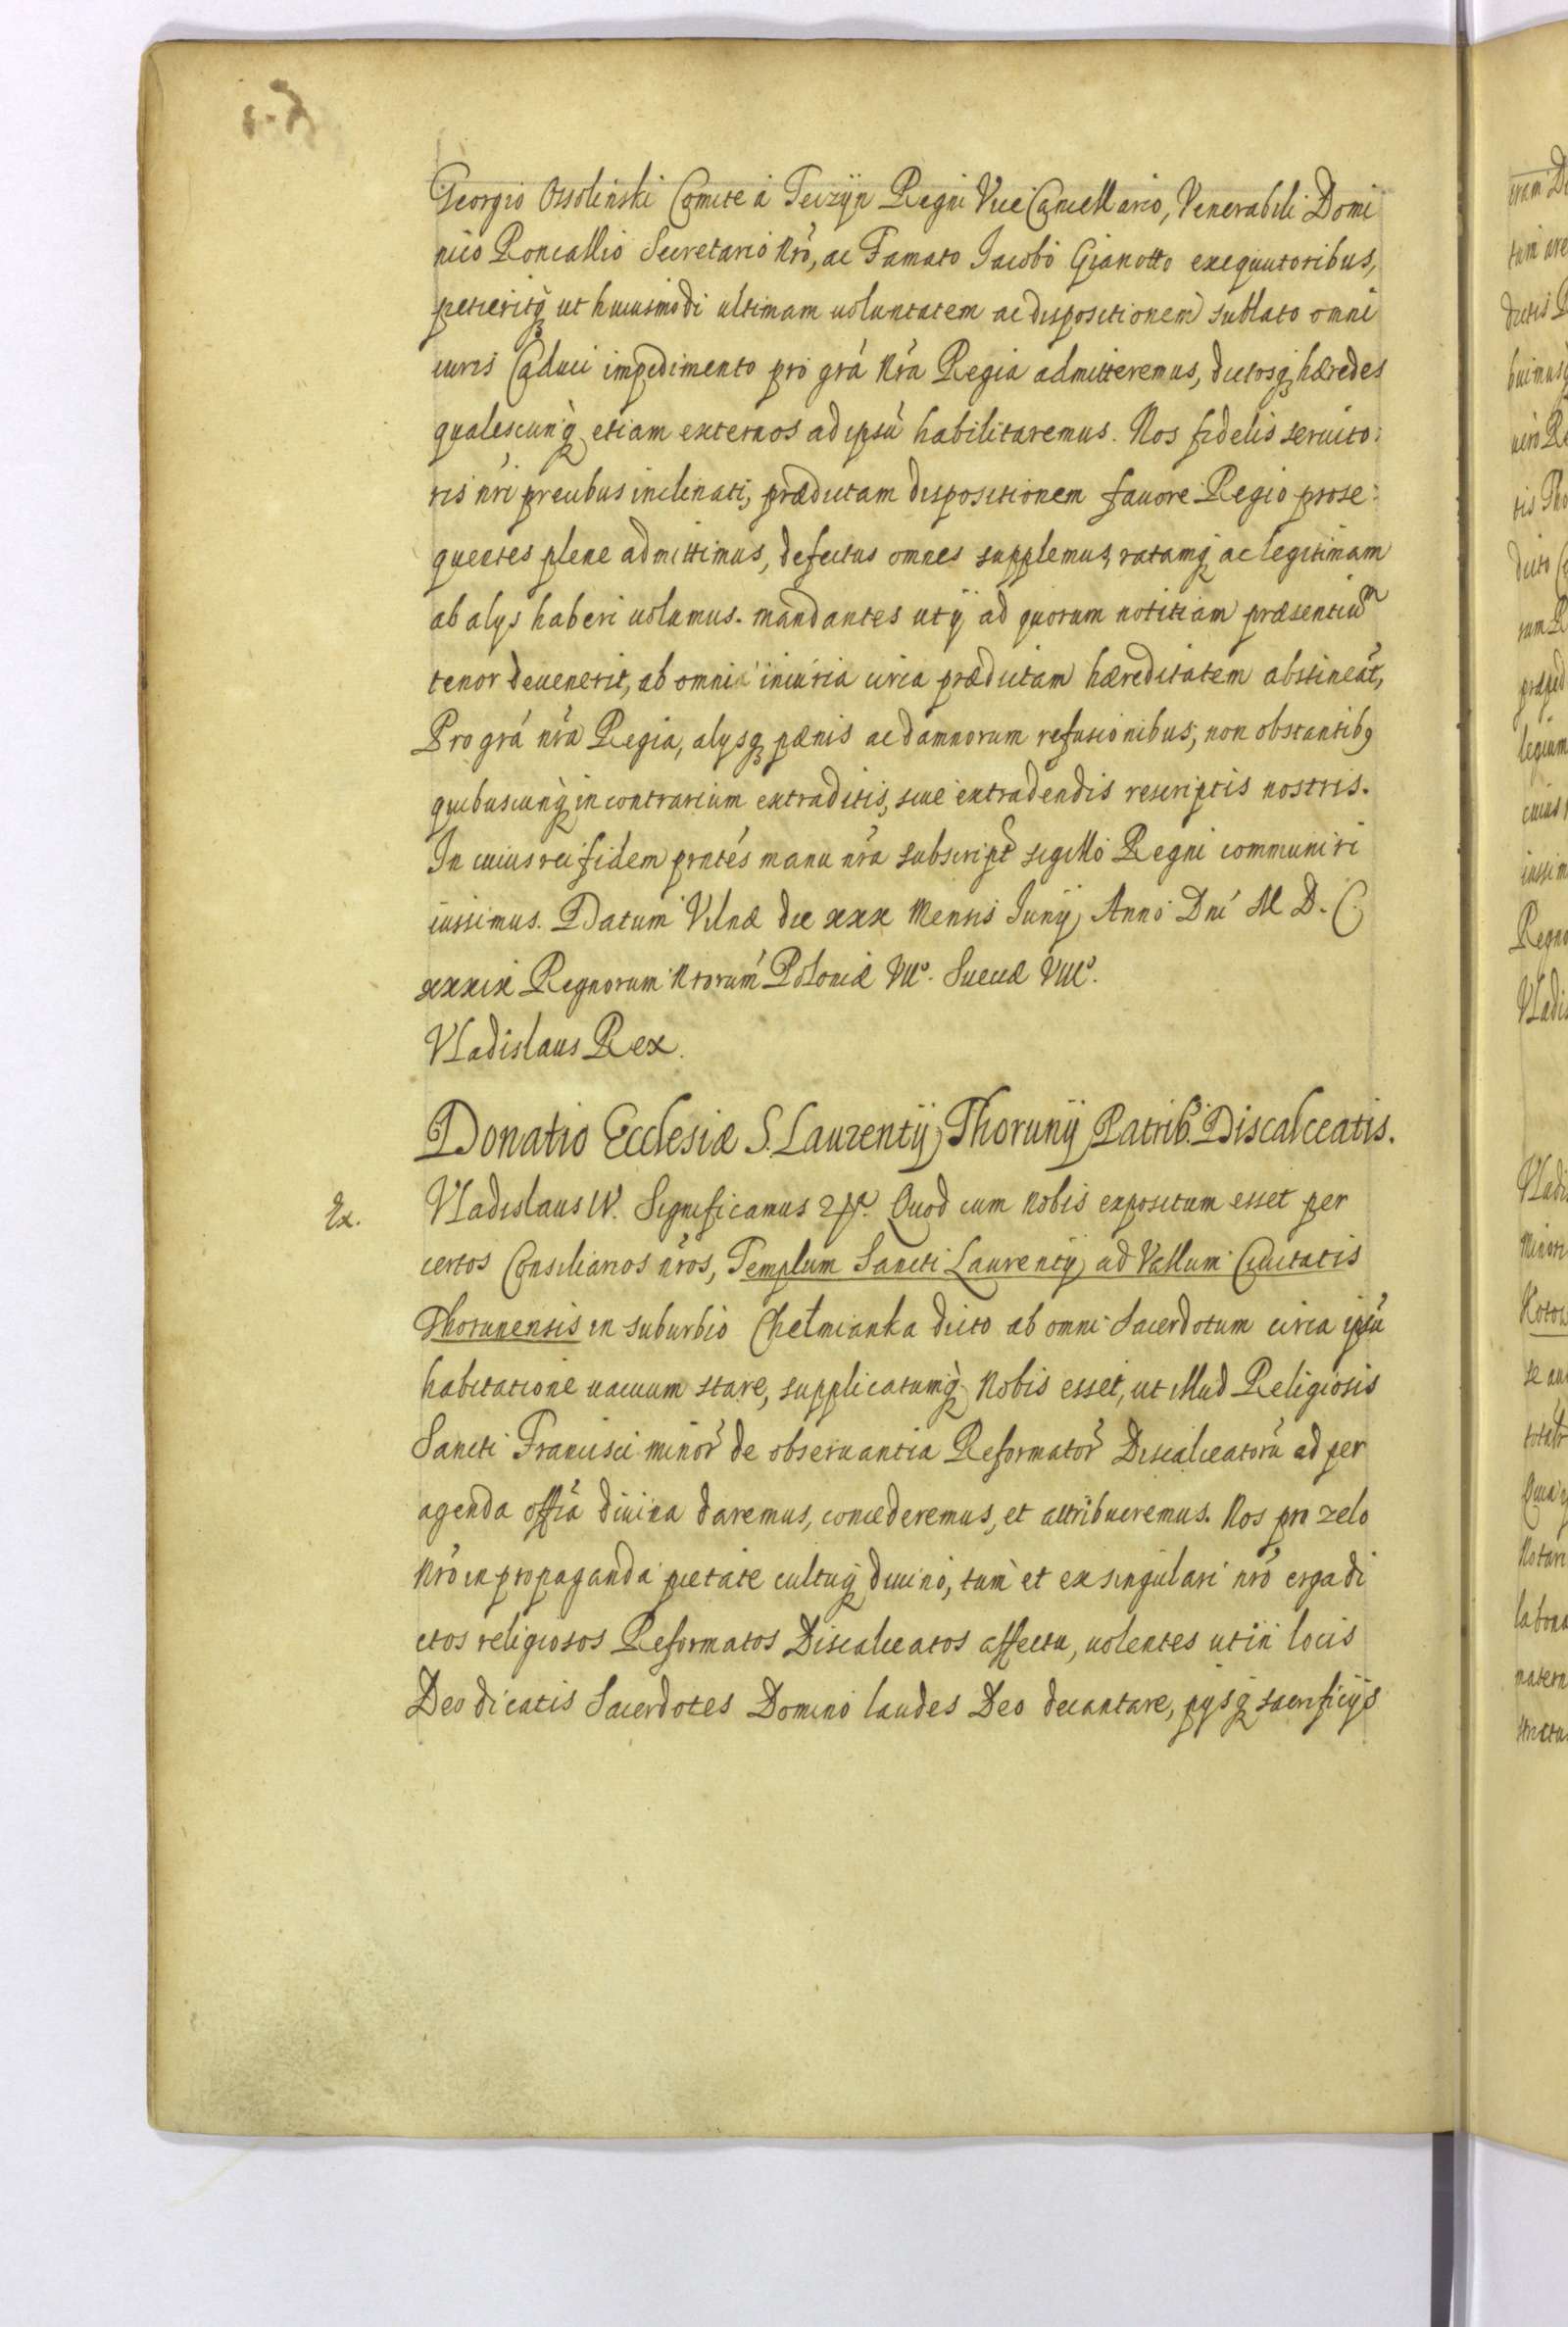 Georgio Ossolinski Comite à Teczÿn Regni Vice Cancellario, Venerabili Domi
nico Roncallio Secretario Nrō, ac Famato Iacobo Gianotto exequutoribus,
petieritq; ut huiusmodi ultimam uoluntatem ac dispositionem sublato omni
iuris Caduci impedimento pro grā Nrā Regia admitteremus, dictosq; hæredes
qualescunq; etiam externos ad ipsū habilitaremus. Nos fidelis seruito:
ris nrī precibus inclinati, prædictam dispositionem fauore Regio prose:
quentes plene admittimus, defectus omnes supplemus, ratamq; ac legitimam
ab alys haberi uolumus. mandantes ut ÿ ad quorum notitiam præsentium
tenor deuenerit, ab omni iniuria circa prædictam hæreditatem abstineāt,
Pro grā nrā Regia, alysq; pænis ac damnorum refusionibus, non obstantibꝰ
quibuscunq; in contrarium extraditis, siue extradendis rescriptis nostris.
In cuius rei fidem pntēs manu nrā subscript sigillo Regni communiri
iussimus. Datum Vilnæ die xxx Mensis Junÿ Anno Dnī M D. C
xxxix Regnorum Nrorum Poloniæ VIIº. Sueciæ VIIIº.
Vladislaus Rex.
Donatio Ecclesiæ S. Laurentÿ Thorunÿ Patrib. Discalceatis.
Ex. Vladislaus IV. Significamus &c. Quod cum Nobis expositum esset per
certos Consiliarios nrōs, Templum Sancti Laurentÿ ad Vallum Ciuitatis
Thorunensis in suburbio Chełmianka dicto ab omni Sacerdotum circa ipsū
habitatione uacuum stare, supplicatumq; Nobis esset, ut illud Religiosis
Sancti Francisci minor̄ de obseruantia Reformator̄ Discalceatorū ad per
agenda offiā diuina daremus, concederemus, et attribueremus. Nos pro zelo
Nrō in propaganda pietate cultuq; diuino, tum et ex singulari nrō erga di
ctos religiosos Reformatos Discalceatos affectu, uolentes ut in locis
Deo dicatis Sacerdotes Domino laudes Deo decantare, pysq; sacrificÿs